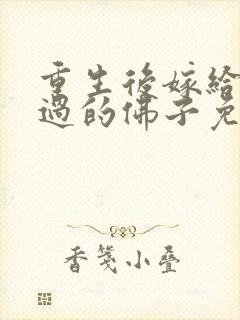 重生後嫁給
過的佛子免
香箋小疊